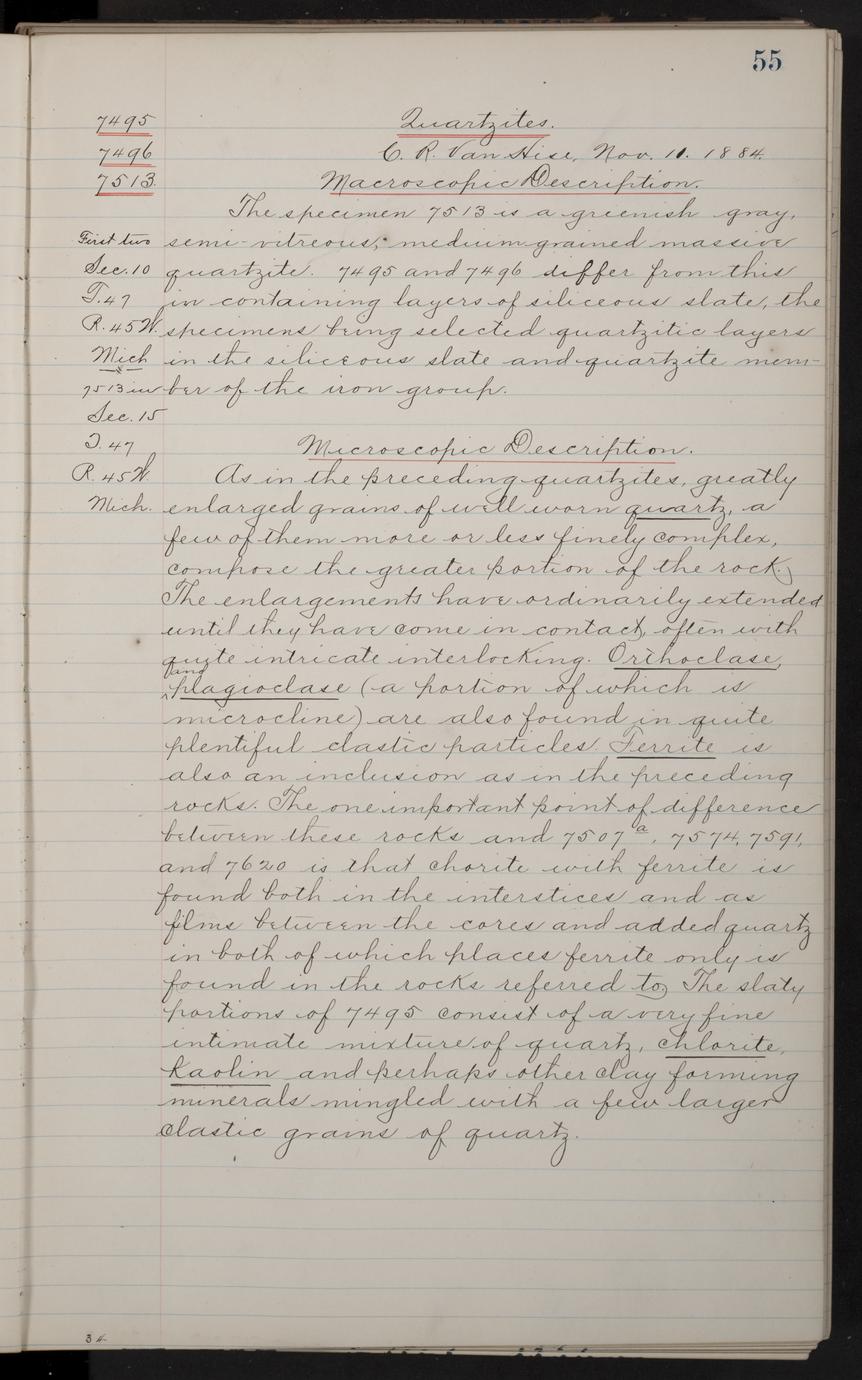 55
7495 Quartzites.
7496 C. R. Van Hise, Nov. 11. 1884.
7513. Macroscopic Description.
The specimen 7513 is a greenish gray,
First two semi-vitreous, medium grained massive
Sec. 10 quartzite. 7495 and 7496 differ from this
T. 47 in containing layers of siliceous slate, the
R. 45 W. specimens being selected quartzitic layers
Mich in the siliceous slate and quartzite mem-
7513 in ber of the iron group.
Sec. 15
T. 47 Microscopic Description.
R. 45 W. As in the preceding quartzites, greatly
Mich. enlarged grains of well worn quartz, a
few of them more or less finely complex,
compose the greater portion of the rock.
The enlargements have ordinarily extended
until they have come in contact, often with
quite intricate interlocking. Orthoclase,
and
plagioclase (a portion of which is
microcline) are also found in quite
plentiful clastic particles. Ferrite is
also an inclusion as in the preceding
rocks. The one important point of difference
between these rocks and 7507a, 7574, 7591,
and 7620 is that chorite with ferrite is
found both in the interstices and as
films between the cores and added quartz
in both of which places ferrite only is
found in the rocks referred to. The slaty
portions of 7495 consist of a very fine
intimate mixture of quartz, chlorite,
Kaolin and perhaps other clay forming
minerals mingled with a few larger
clastic grains of quartz.
34